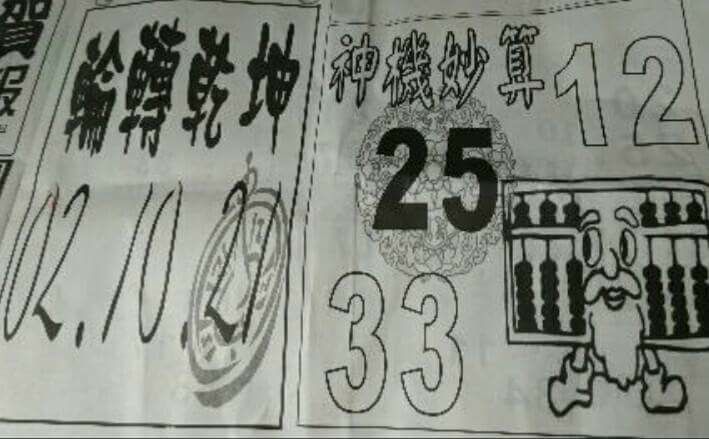 賀報
輪轉乾坤
02.10.21
神機妙算
12
25
33